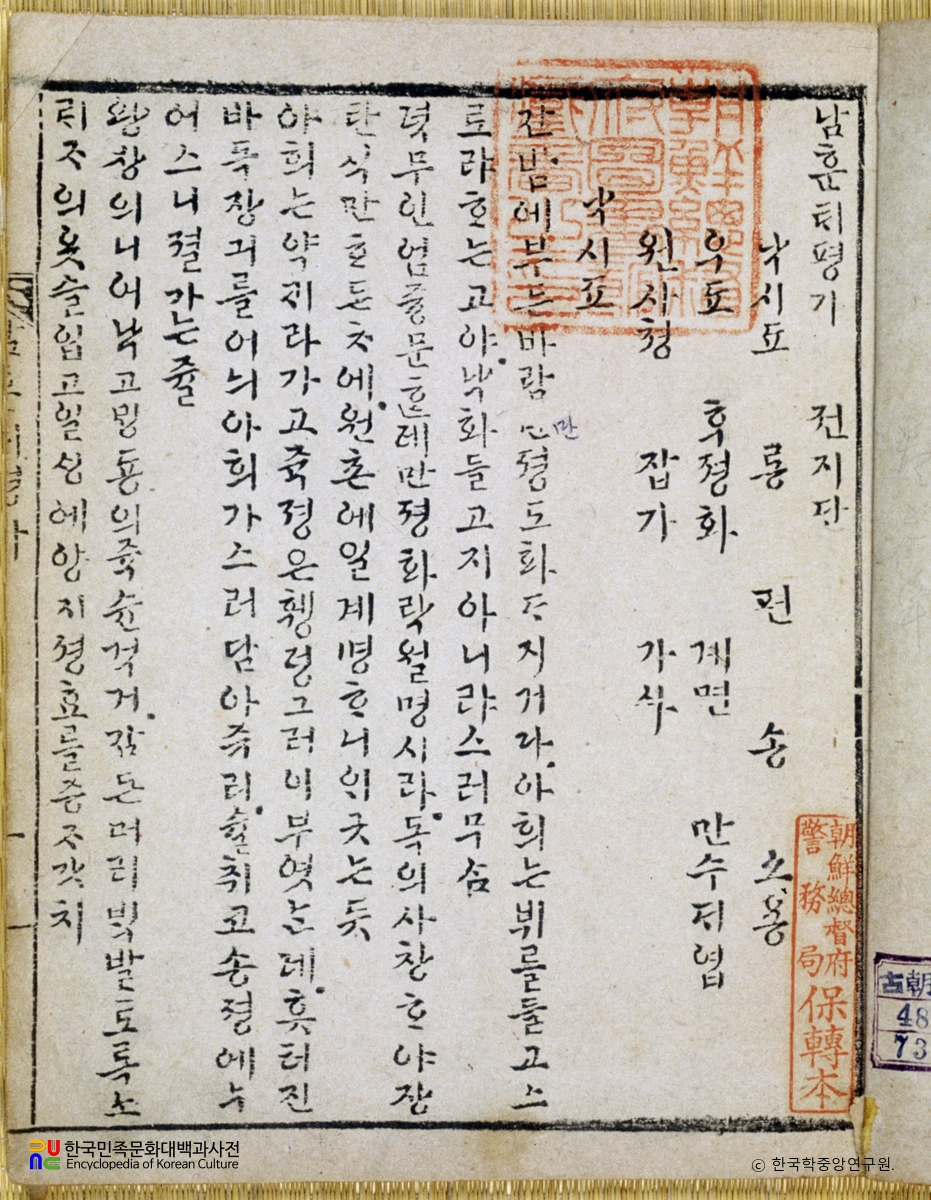 남훈ᄐᆡ평가 젼지단
낙시됴 롱 편 송 소용
우됴 후졍화 계면 만수ᄃᆡ엽
원사쳥 잡가 가사
낙시됴
간밤에부든바람 만졍도화 다지거다아희는뷔를들고스
로랴ᄒᆞ는고야낙화들고지아니랴스러무ᄉᆞᆷ
뎟무인엄즁문ᄒᆞᆫ데만졍화락월명시라독의사창ᄒᆞ야장
탄식만ᄒᆞ든ᄎᆞ에원촌에일계명ᄒᆞ니ᄋᆡ긋는듯
아희는약ᄏᆡ라가고쥭졍은휑덩그러이부엿ᄂᆞᆫ데흣터진
바독장긔를어늬아희가스러담아쥬리슐취고송졍에누
어스니졀가는쥴
왕상의니어낙고ᄆᆡᆼ동의쥭슌걱거감든머리빅발토록노
ᄅᆡᄌᆞ의옷슬입고일ᄉᆡᆼ에양지셩효를증ᄌᆞ갓치
만
朝鮮總督府
警務局
保轉本
古朝
48
73
한국민족문화대백과사전
Encyclopedia of Korean Culture
© 한국학중앙연구원.